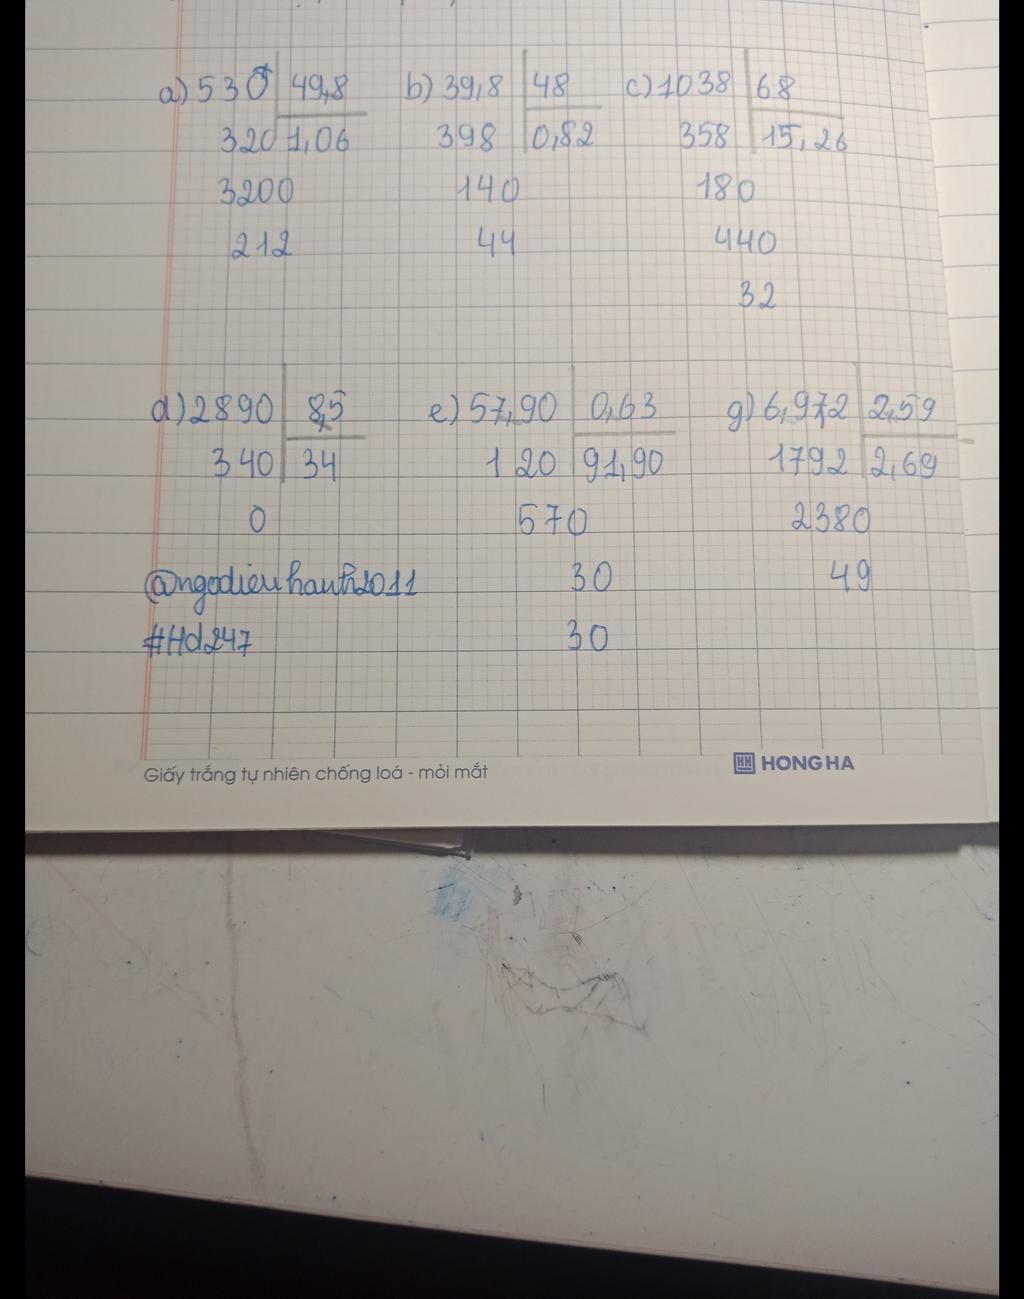 a) 530 49,8 b) 39,8 48 c) 1038 68
320 1,06 398 0,82 358 15,26
3200 140 180
212 44 440
32
d) 2890 8,5 e) 57,90 0,63 g) 6,972 2,59
340 34 120 91,90 1792 2,69
0 570 2380
@ngodieuhanh2011 30 49
#Hd247 30
Giấy trắng tự nhiên chống loá - mỏi mắt HH HONG HA